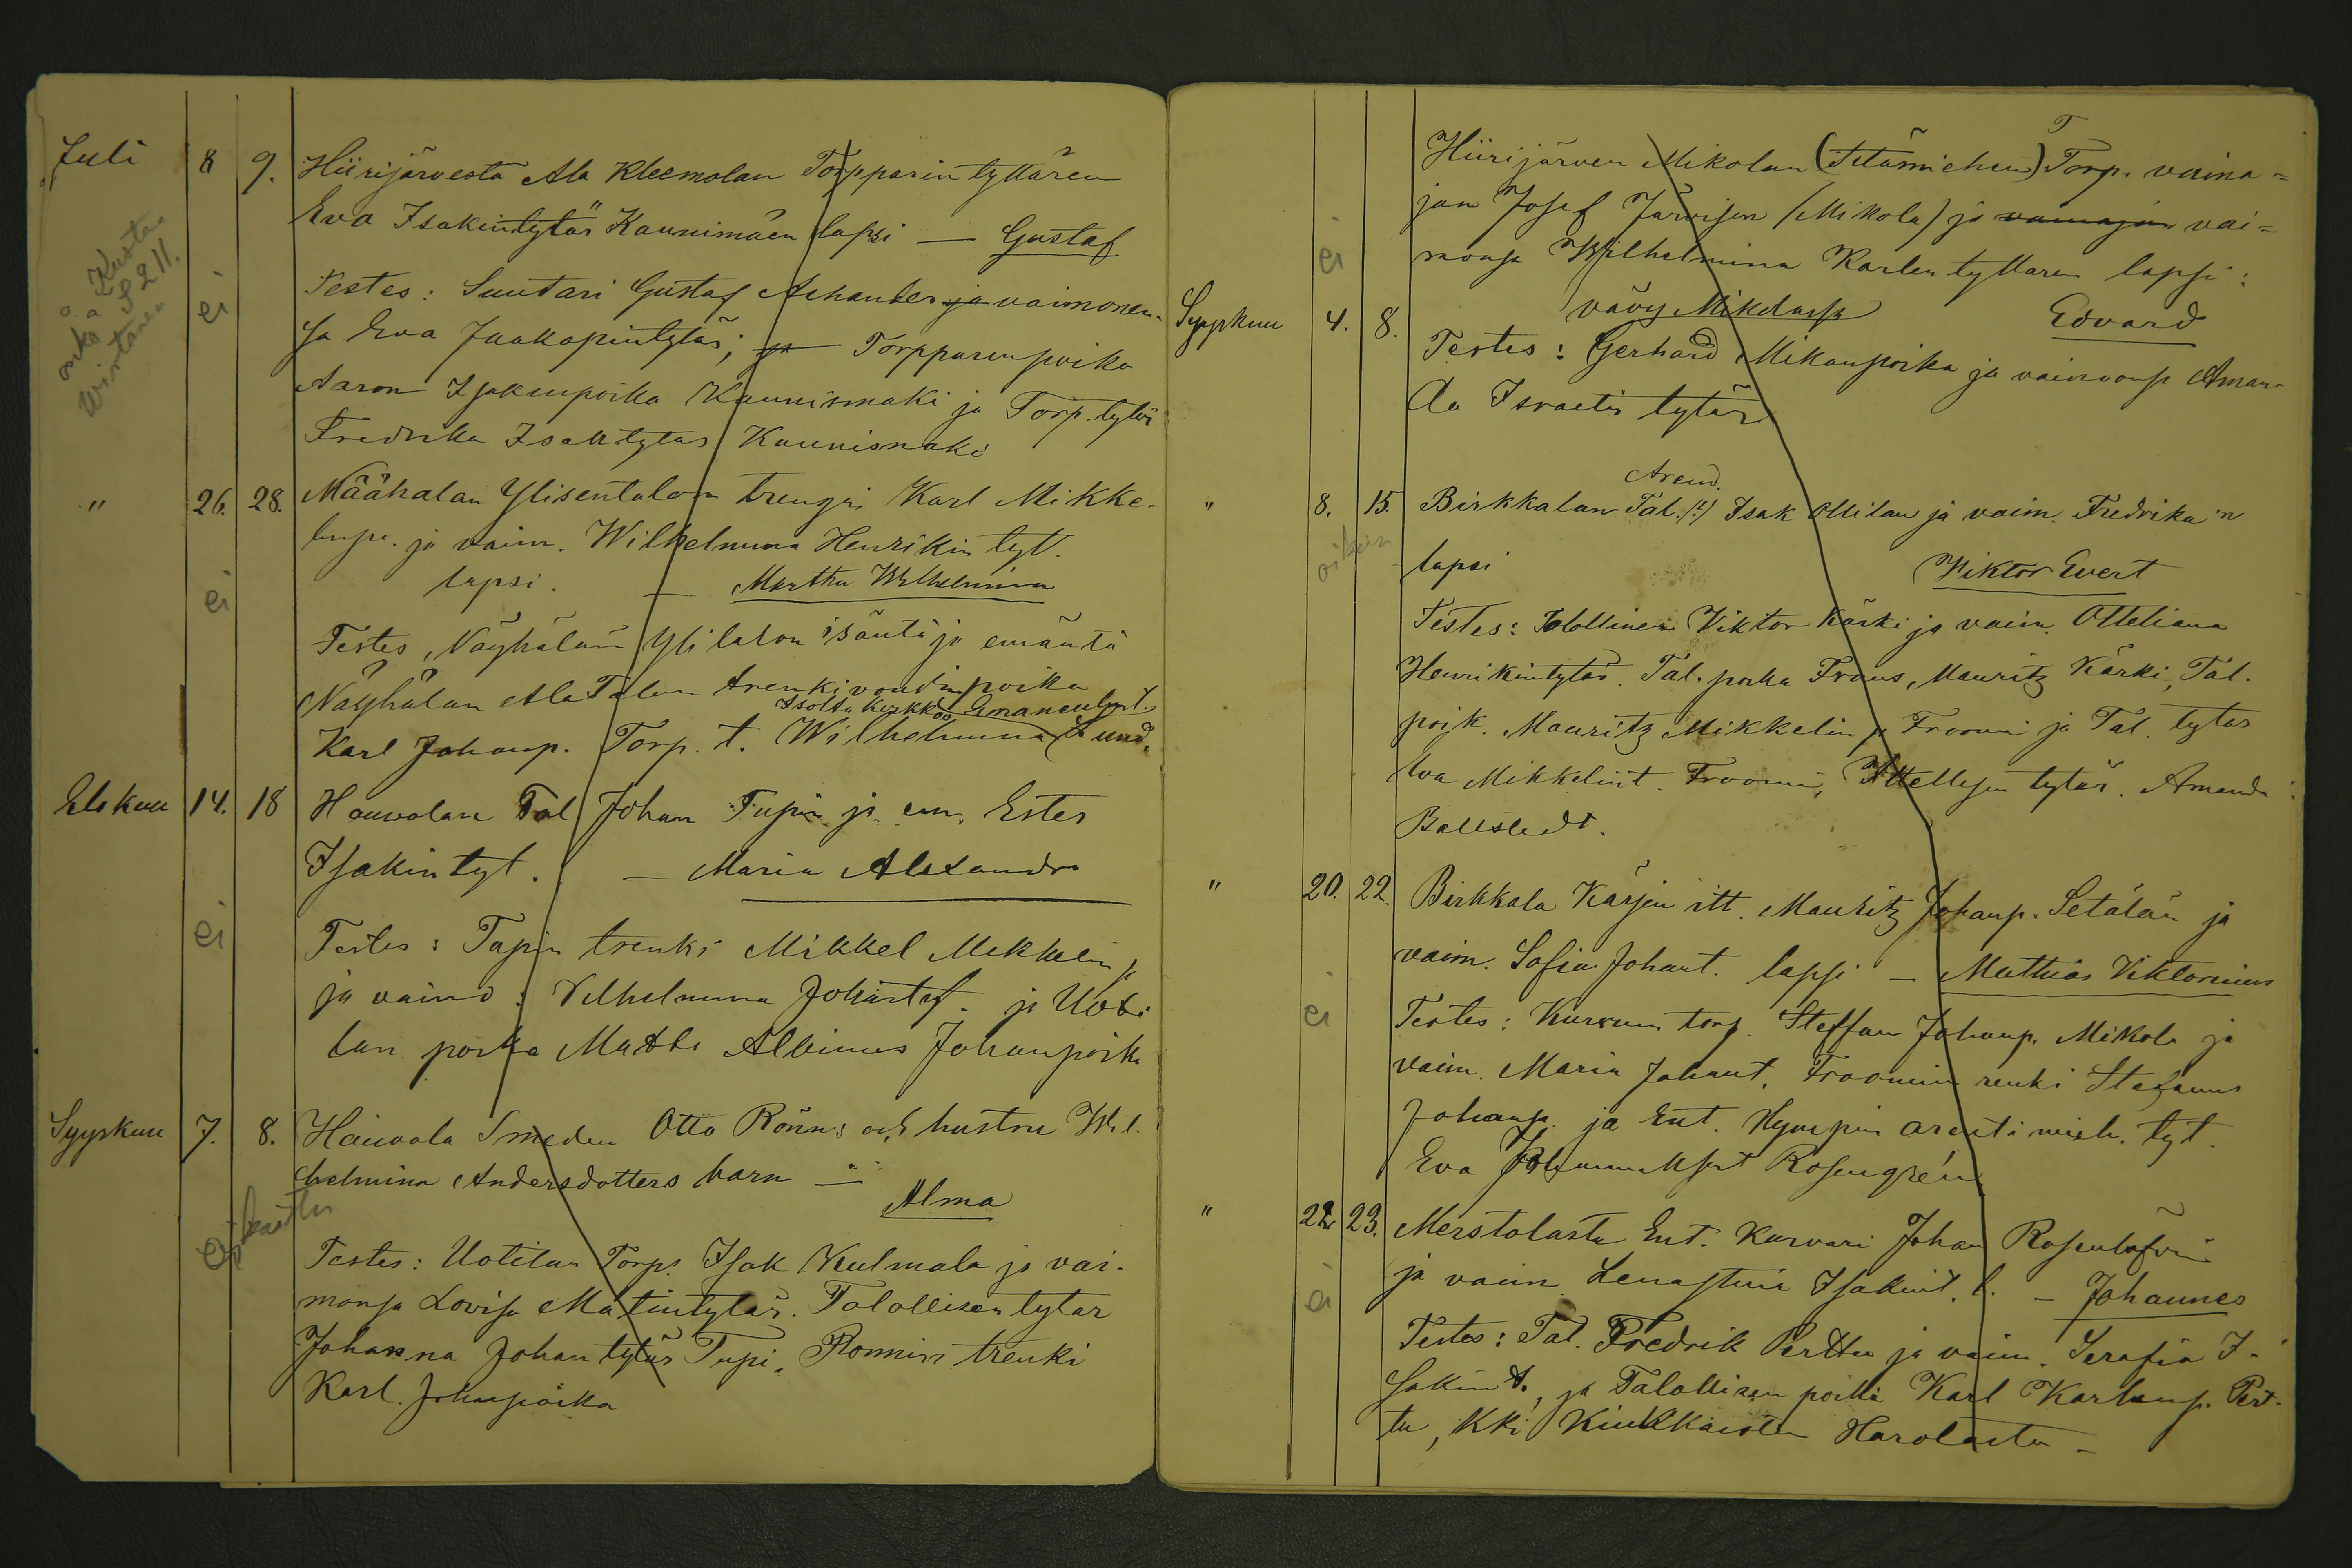 Juli 8 9. Hiirijärvestä Ala Kleemolan Torpparin tyttären
Eva Isakintytär Kaunimäen lapsi — Gustaf
Kustaa
S 211.
Wirtanen
ei
Testes: Suutari Gustaf Achander ja vaimonen-
sa Eva Jaakopintytär; ja Torpparinpoika
Aaron Isakinpoika Kaunismaki ja Torp. tytär
Fredrika Isaktytar Kaunismaki
" 26. 28. Määhalan Ylisentalon trengin Karl Mikke-
linpo. ja vaim. Wilhelmina Henrikin tyt.
lapsi. — Martha Wilhelmina
ei
Testes, Näyhälän Ylitalon isäntä ja emäntä
Näyhälan Ala Talon trenkivoudin poika
Isolta Kirkkoo Emanuel
Karl Johanp. Torp. t. Wilhelmina Lund.
Elokuu 14. 18 Hauvolan Tal Johan Tupin ja em. Ester
Isakin tyt. — Maria Alexandra
ei
Testes: Tupin trenki Mikkel Mikkelin p
ja vaimo: Vilhelmina Johantyt. ja Uoti
lan poika Matti Albinus Johanpoika
Syyskuu 7. 8. Hauvola Smeden Otto Rönns och hustru Wil.
helmina Andersdotters barn —
Alma
Testes: Uotilan Torp. Isak Keulmala ja vai-
monsa Lovisa Matintytär. Talollisen tytar
Johanna Johantytär Tupi. Ronnin trenki
Karl. Johanpoika
Hiirijärven Mikolan (Itämiehen) Torp. vaina=
jan Josef Järvisen (Mikola) ja vainajan vai=
ei
monsa Wilhelmina Karlen tyttaren lapsi:
vävy Mikolassa Edvard
Syyskuu 4. 8.
Testes: Gerhard Mikanpoika ja vaimonsa Aman-
da Israelin tytär
Arend.
" 8. 15. Birkkalan Tal. (?) Isak Ollilan ja vaim. Fredrika'n
oikein
lapsi Viktor Evert
Testes: Talollinen Viktor Kärki ja vaim. Otteliana
Henrikintytär. Tal. poika Frans, Mauritz Kärki, Tal.
poik. Mauritz Mikkelin p. Froomi ja Tal. tytar
Eva Mikkelint. Froomi, Itellisen tytär. Amanda
Ballstedt.
" 20. 22. Birkkala Kärjen itt. Mauritz Johanp. Setälän ja
vaim. Sofia Johant. lapsi — Matthias Viktorinus
ei
Testes: Kurkun torp. Steffan Johanp. Mikola ja
vaim. Maria Johant. Froomin renki Stefanus
Johanp. ja Ent. Hyvpin arenti mieh. tyt.
Eva Rosengrén
" 22. 23. Merstolasta Ent. Karvari Johan Rosenlöfvin
ja vaim. Lenastiina Isakint. l. — Johannes
ei
Testes: Tal. Fredrik Perttu ja vaim. Serafia I-
sakin t., ja Talollisen poika Karl Karlenp. Pert-
tu, Kki Kiukkaisten Harolasta —